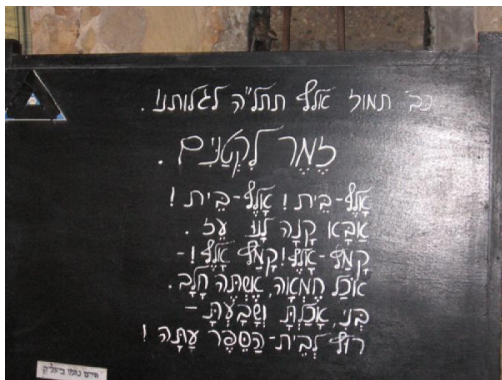 כב תמוז אלף תתל״ה לגלותנו.
זֶמֶר לִקְטַנִּים.
אָלֶף-בֵּית! אָלֶף-בֵּית!
אַבָּא קָנָה לָנוּ עֵז.
קָמַץ-אָלֶף! קָמַץ אָלֶף!-
אֹכַל חֶמְאָה, אֶשְׁתֶּה חָלָב.
בְּנִי, אָכַלְתָּ וְשָׂבָעְתָּ -
רוּץ לְבֵית-הַסֵּפֶר עָתָּה!
חיים נחמן ביאליק